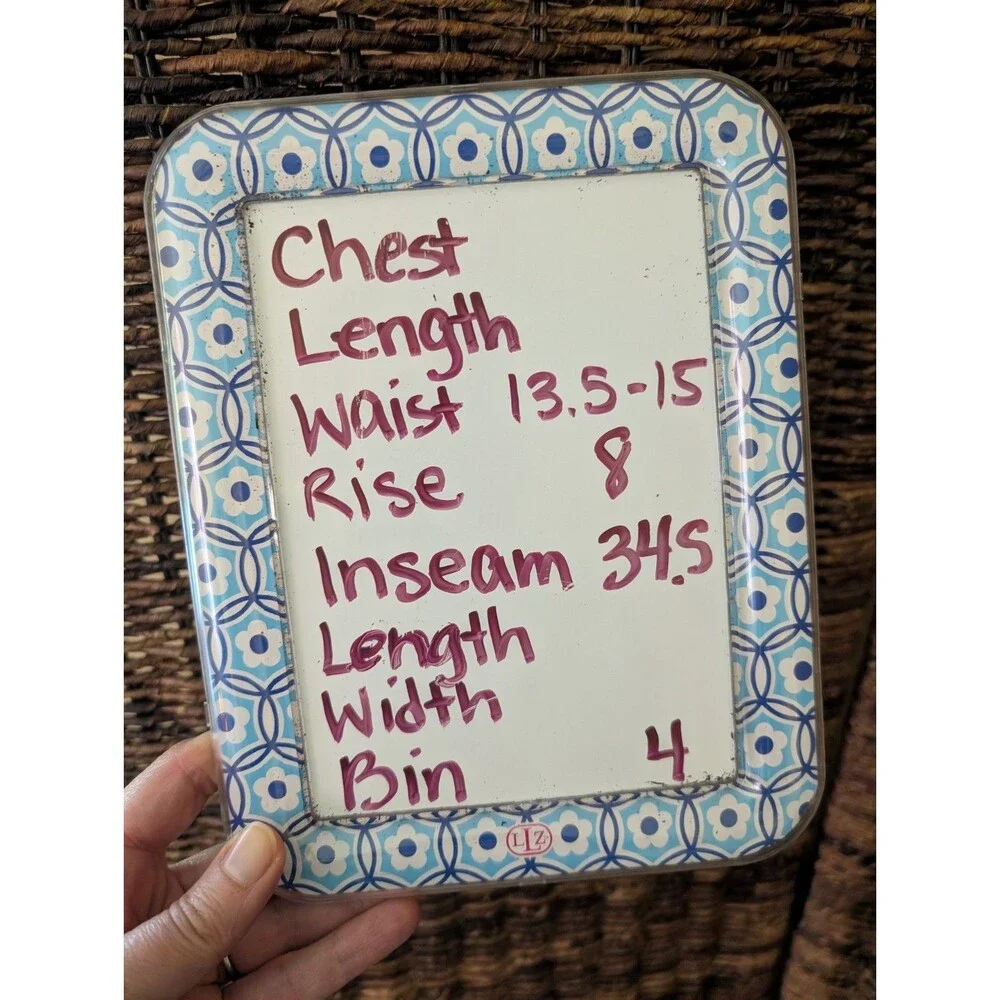 Chest
Length
Waist 13.5-15
Rise 8
Inseam 34.5
Length
Width
Bin 4
LLZ